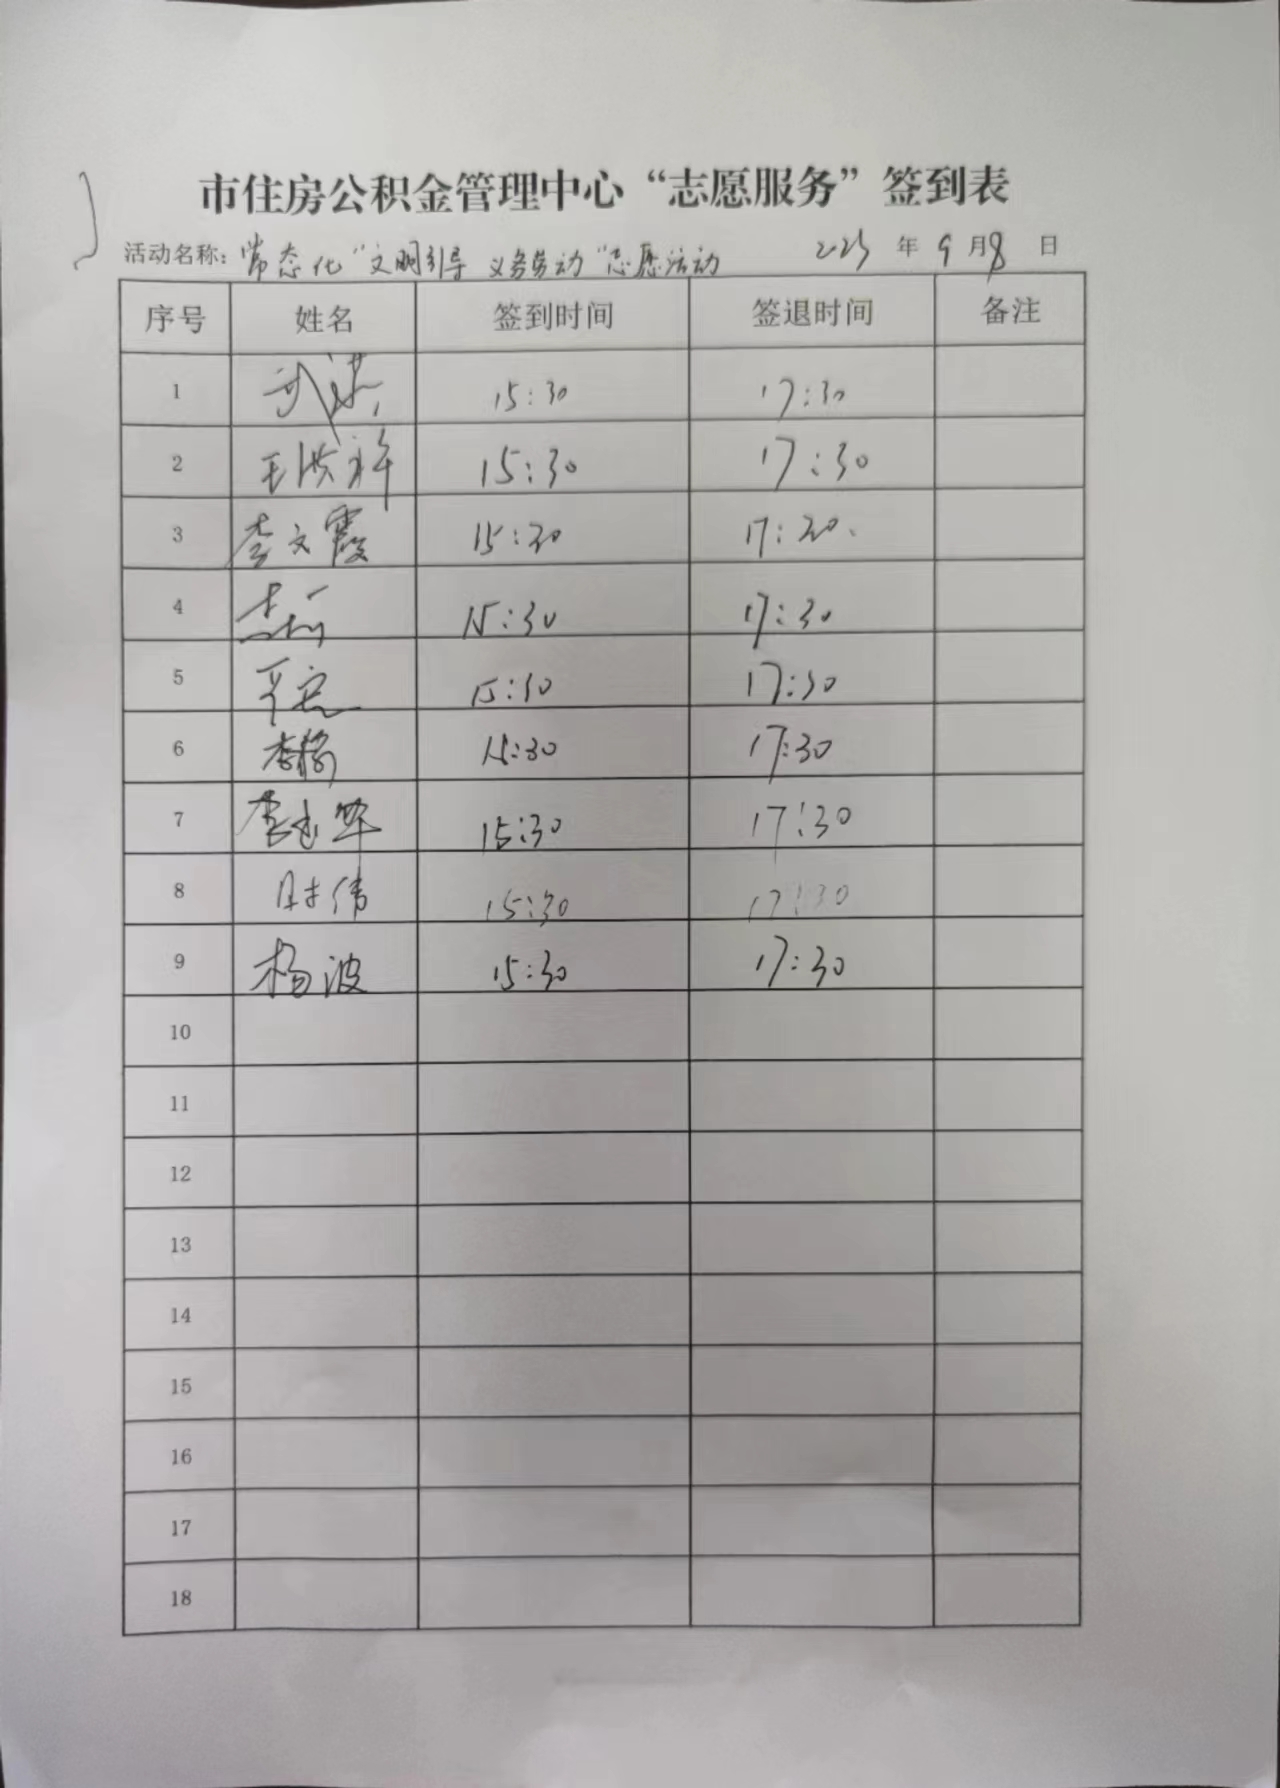 市住房公积金管理中心“志愿服务”签到表
活动名称：常态化“文明引导 义务劳动”志愿活动 2023 年 9 月 8 日
序号 姓名 签到时间 签退时间 备注
1 15:30 17:30
2 王洪祥 15:30 17:30
3 李文霞 15:30 17:30
4 15:30 17:30
5 平安 15:30 17:30
6 15:30 17:30
7 15:30 17:30
8 时伟 15:30 17:30
9 杨波 15:30 17:30
10
11
12
13
14
15
16
17
18